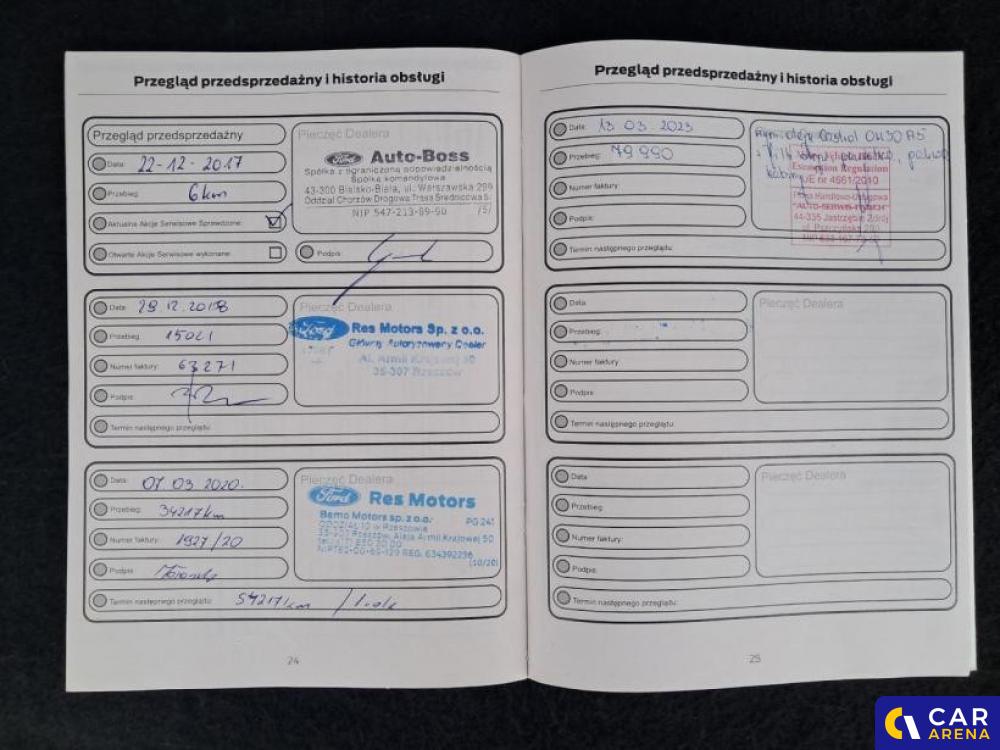 Przegląd przedsprzedażny i historia obsługi
Przegląd przedsprzedażny
Data: 22-12-2017
Przebieg: 6km
Aktualne Akcje Serwisowe Sprawdzone:
Otwarte Akcje Serwisowe wykonane:
Pieczęć Dealera
Ford Auto-Boss
Spółka z ograniczoną odpowiedzialnością
Spółka komandytowa
43-300 Bielsko-Biała, ul. Warszawska 299
Oddział Chorzów Drogowa Trasa Średnicowa
NIP 547-213-89-90 /5/
Podpis:
Data: 29.12.2018
Przebieg: 15021
Numer faktury: 63271
Podpis:
Termin następnego przeglądu:
Pieczęć Dealera
Ford Res Motors Sp. z o.o.
Główny Autoryzowany Dealer
Al. Armii Krajowej 50
35-307 Rzeszów
Data: 07.03.2020.
Przebieg: 34217km
Numer faktury: 1927/20
Podpis:
Termin następnego przeglądu: 54217km / 1 rok
Pieczęć Dealera
Ford Res Motors
Bemo Motors sp. z o.o. PG 241
ODDZIAŁ w Rzeszowie
Rzeszów, Aleja Armii Krajowej 50
REG. 634392236
(10/20)
24
Przegląd przedsprzedażny i historia obsługi
Data: 13 03 2023
Przebieg: 79 990
Numer faktury:
Podpis:
Termin następnego przeglądu:
oleju Castrol 0W30 A5
UE nr 461/2010
44-335 Jastrzębie Zdrój
Data:
Przebieg:
Numer faktury:
Podpis:
Termin następnego przeglądu:
Pieczęć Dealera
Data:
Przebieg:
Numer faktury:
Podpis:
Termin następnego przeglądu:
Pieczęć Dealera
25
CAR
ARENA